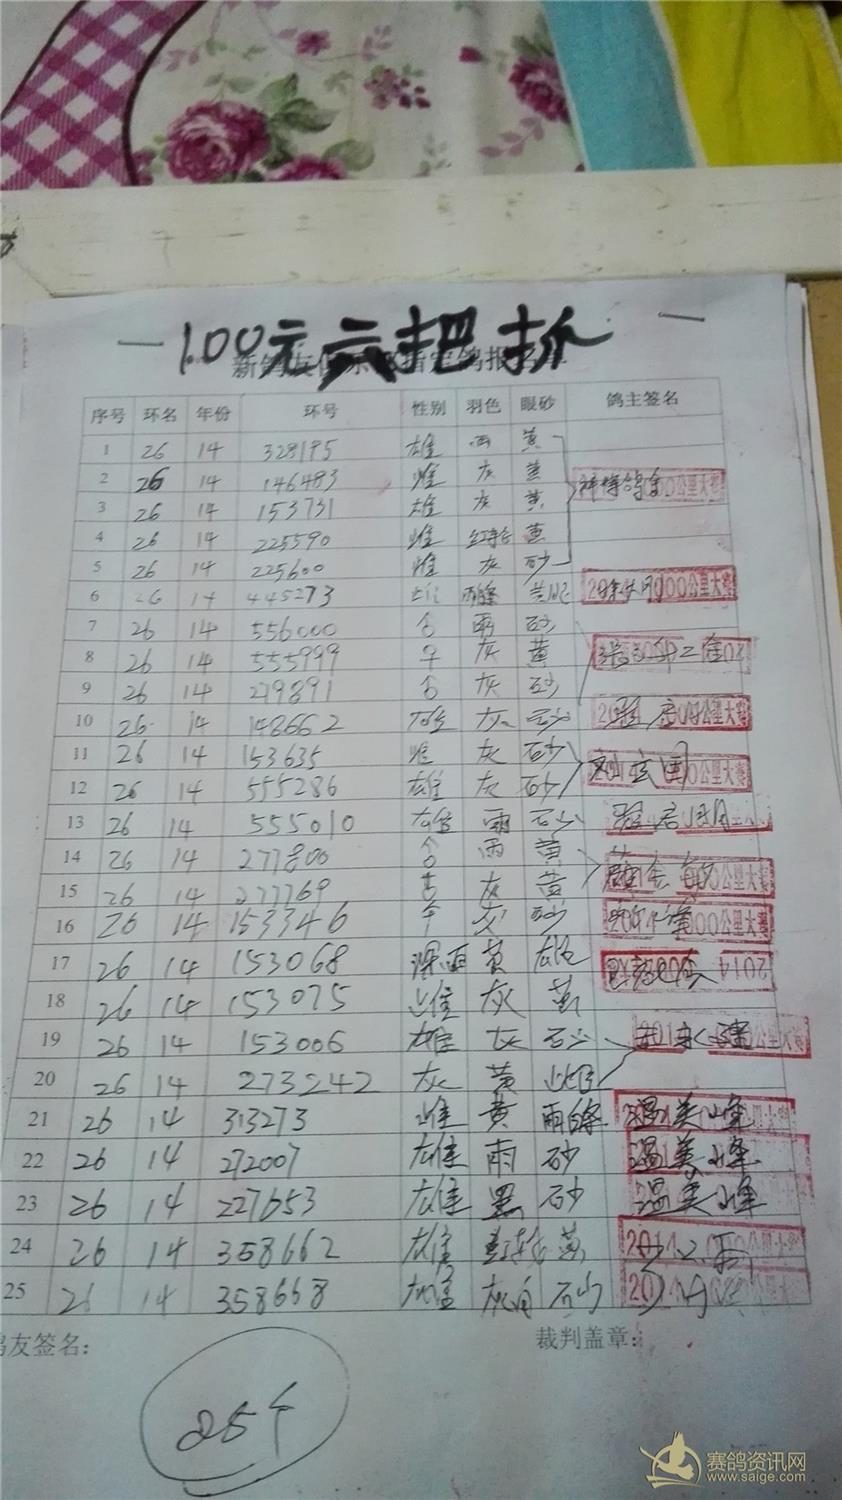 100元六把抓
新鸽友俱乐部指定鸽报名单
序号 环名 年份 环号 性别 羽色 眼砂 鸽主签名
1 26 14 328195 雄 雨 黄
2 26 14 146483 雌 灰 黄 公里大赛
3 26 14 153731 雄 灰 黄
4 26 14 225590 雌 红轮 黄
5 26 14 225600 雌 灰 砂
6 26 14 445273 雌 雨条 黄眼 00公里大赛
7 26 14 556000 合 雨 砂
8 26 14 555999 平 灰 黄
9 26 14 279891 合 灰 砂
10 26 14 148662 雄 灰 石沙 公里大赛
11 26 14 153635 雌 灰 石沙
12 26 14 555286 雄 灰 砂 公里大赛
13 26 14 555010 雄 雨 石沙
14 26 14 277800 合 雨 黄
15 26 14 277769 灰 黄 公里大赛
16 26 14 153346 平 灰 砂 00公里大赛
17 26 14 153068 深雨 黄 雄 2014
18 26 14 153075 雌 灰 黄
19 26 14 153006 雄 灰 石沙 公里大赛
20 26 14 273242 灰 黄
21 26 14 313273 雌 黄 雨条 温美峰
22 26 14 272007 雄 雨 砂 温美峰
23 26 14 227653 雄 黑 砂 温美峰
24 26 14 358662 雄 红轮 黄 2014
25 26 14 358668 雄 灰白 石沙 201
鸽友签名: 裁判盖章:
25个
赛鸽资讯网
www.saige.com